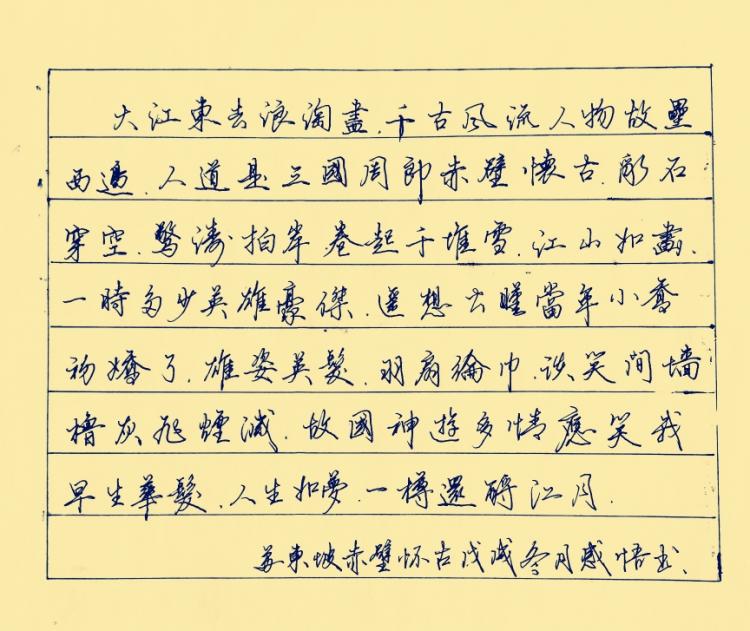 大江東去浪淘盡.千古風流人物故壘
西邊.人道是三國周郎赤壁懷古.亂石
穿空.驚濤拍岸卷起千堆雪.江山如畫.
一時多少英雄豪傑.遥想公瑾當年小喬
初嬌了.雄姿英髮.羽扇綸巾.談笑間墻
櫓灰飛煙滅.故國神遊多情應笑我
早生華髮.人生如夢.一樽還酹江月.
蘇東坡赤壁怀古戊戌冬月感悟書.